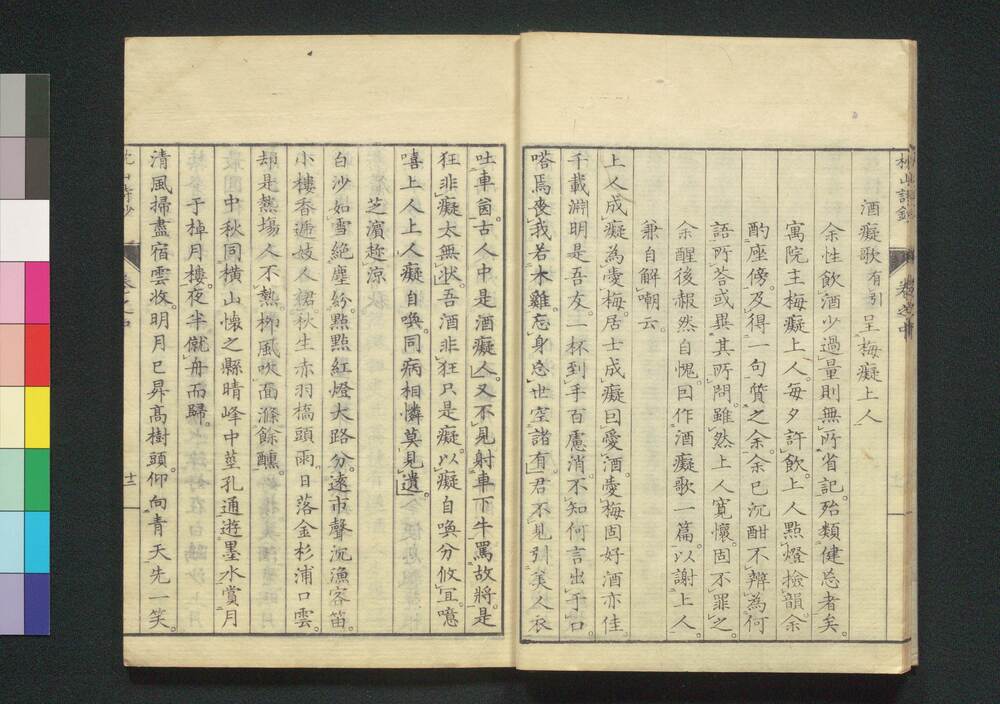 酒癡歌有引呈梅癡上人
余性飲酒少過量則無所省記。殆類健忘者矣。
寓院主梅癡上人。每夕許飲。上人點燈撿韻。余
酌座傍。及得一句質之余。余已沉酣不辨為何
語所荅或異其所問。雖然上人寬懷。固不罪之。
余醒後赧然自愧。因作酒癡歌一篇。以謝上人。
兼自解嘲云。
上人成癡為愛梅。居士成癡因愛酒。愛梅固好酒亦佳
千載淵明是吾友。一杯到手百慮消。不知何言出于口。
嗒焉喪我若木雞。忘身忘世空諸有。君不見引美人衣
吐車茵。古人中是酒癡人。又不見射車下牛罵故將。是
狂非癡太無狀。吾酒非狂只是癡。以癡自喚分攸宜。噫
嘻上人上人癡自喚。同病相憐莫見遺。
芝濱趁涼
白沙如雪絕塵紛。點點紅燈大路分。遠市聲沉漁客笛。
小樓香遞妓人裙。秋生赤羽橋頭雨。日落金杉浦口雲。
却是熱塲人不熱。柳風吹面滌餘醺。
中秋同橫山懷之縣晴峰中莖孔通遊墨水賞月
于棹月樓。夜半僦舟而歸。
清風掃盡宿雲收。明月已昇高樹頭。仰向青天先一笑。
十二